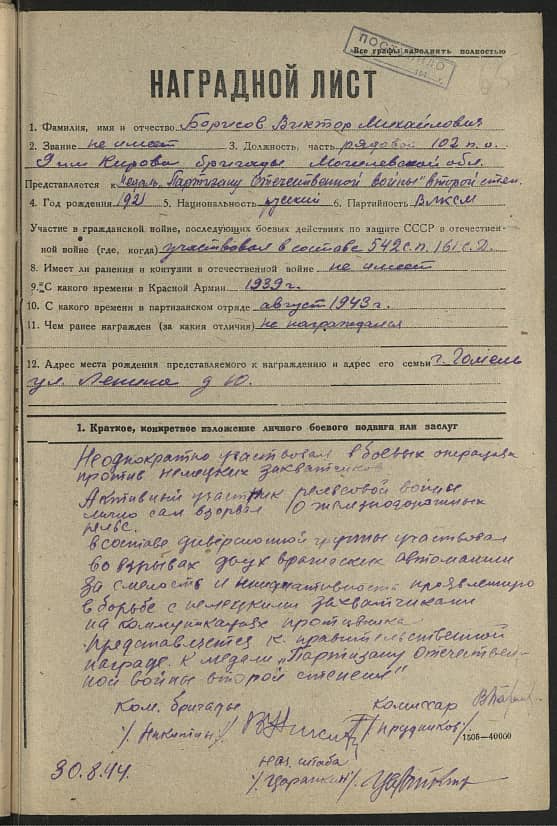 ПОСТУПИЛО
Все графы заполнять полностью
НАГРАДНОЙ ЛИСТ
1. Фамилия, имя и отчество Борисов Виктор Михайлович
2. Звание не имеет 3. Должность, часть рядовой 102 п.о.
9 им Кирова бригады Могилевской обл.
Представляется к медали "Партизану Отечественной войны" второй степ.
4. Год рождения 1921 5. Национальность русский 6. Партийность ВЛКСМ
Участие в гражданской войне, последующих боевых действиях по защите СССР в отечествен-
ной войне (где, когда) участвовал в составе 542 с.п. 161 с.д.
8. Имеет ли ранения и контузии в отечественной войне не имеет
9. С какого времени в Красной Армии 1939 г.
10. С какого времени в партизанском отряде август 1943 г.
11. Чем ранее награжден (за какия отличия) не награждался
12. Адрес места рождения представляемого к награждению и адрес его семьи г. Гомель
ул. Ленина д 10.
1. Краткое, конкретное изложение личного боевого подвига или заслуг
Неоднократно участвовал в боевых операциях
против немецких захватчиков
Активный участник рельсовой войны
лично сам взорвал 10 железнодорожных
рельс.
в составе диверсионной группы участвовал
во взрывах двух вражеских автомашин
за смелость и инициативность проявленную
в борьбе с немецкими захватчиками
на коммуникациях противника
представляется к правительственной
награде к медали "Партизану Отечествен-
ной войны второй степени"
Ком. бригады Комиссар
/Никитин/ /Прудников/
1505—40000
30.8.44. нач. штаба
/Царапкин/